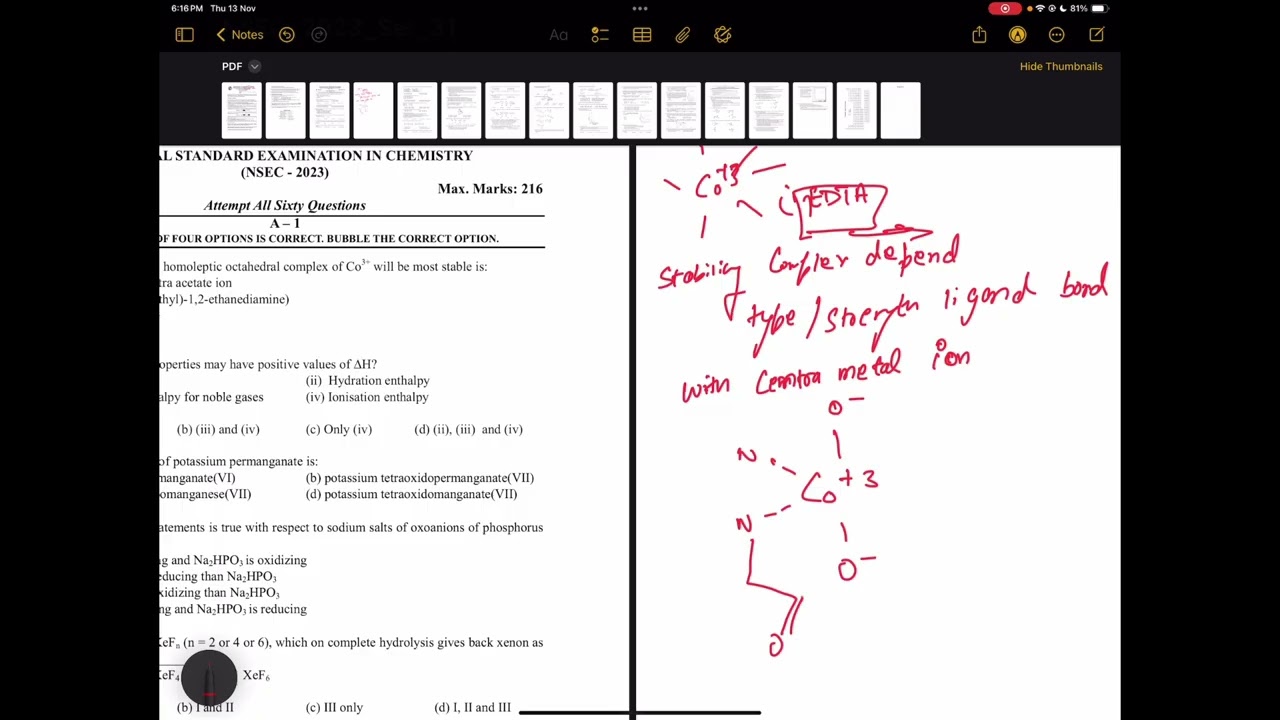 6:16 PM Thu 13 Nov
81%
Notes
Aa
PDF
Hide Thumbnails
AL STANDARD EXAMINATION IN CHEMISTRY
(NSEC - 2023)
Max. Marks: 216
Attempt All Sixty Questions
A – 1
OF FOUR OPTIONS IS CORRECT. BUBBLE THE CORRECT OPTION.
homoleptic octahedral complex of Co3+ will be most stable is:
tra acetate ion
thyl)-1,2-ethanediamine)
operties may have positive values of ΔH?
(ii) Hydration enthalpy
alpy for noble gases (iv) Ionisation enthalpy
(b) (iii) and (iv) (c) Only (iv) (d) (ii), (iii) and (iv)
of potassium permanganate is:
manganate(VI) (b) potassium tetraoxidopermanganate(VII)
omanganese(VII) (d) potassium tetraoxidomanganate(VII)
atements is true with respect to sodium salts of oxoanions of phosphorus
ng and Na2HPO3 is oxidizing
educing than Na2HPO3
xidizing than Na2HPO3
ng and Na2HPO3 is reducing
XeFn (n = 2 or 4 or 6), which on complete hydrolysis gives back xenon as
XeF4 XeF6
(b) I and II (c) III only (d) I, II and III
Co+3
EDTA
Stability Complex depend
type / strength ligand bond
with metal ion
O−
N
Co+3
N
O−
O